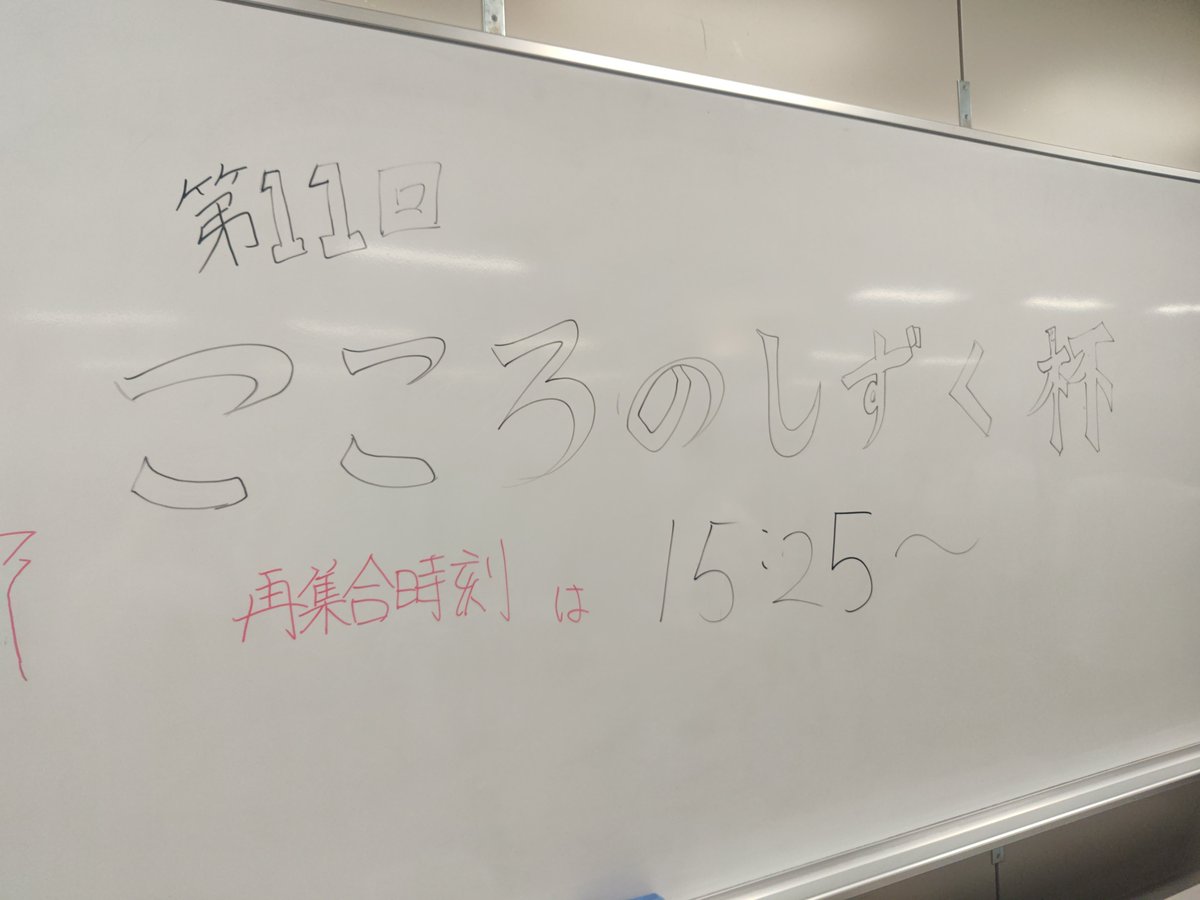 第11回
こころのしずく杯
再集合時刻 は 15:25〜